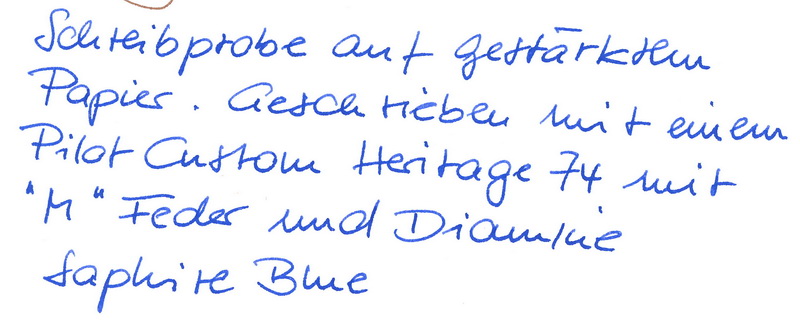 Schreibprobe auf gestärktem
Papier. Geschrieben mit einem
Pilot Custom Heritage 74 mit
"M" Feder und Diamine
Saphire Blue